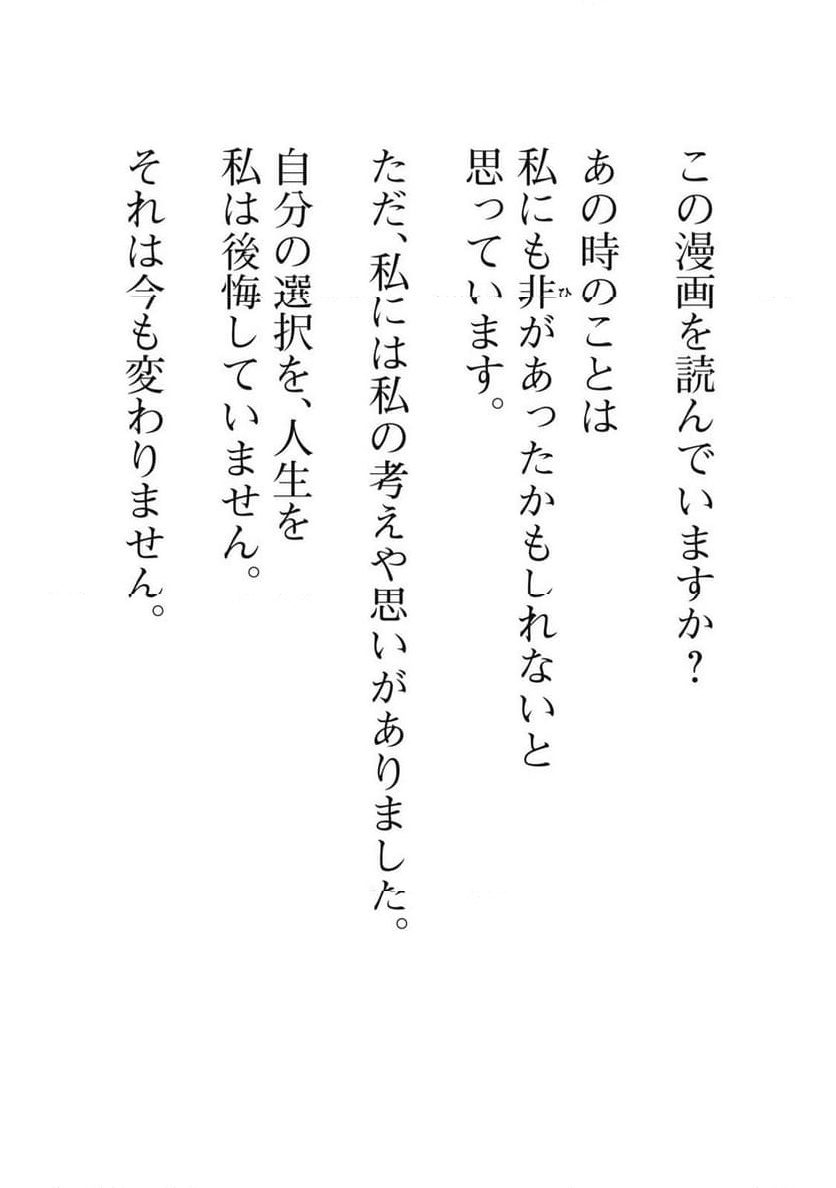 この漫画を読んでいますか?
あの時のことは
私にも非があったかもしれないと
ひ
思っています。
ただ、私には私の考えや思いがありました。
自分の選択を、人生を
私は後悔していません。
それは今も変わりません。